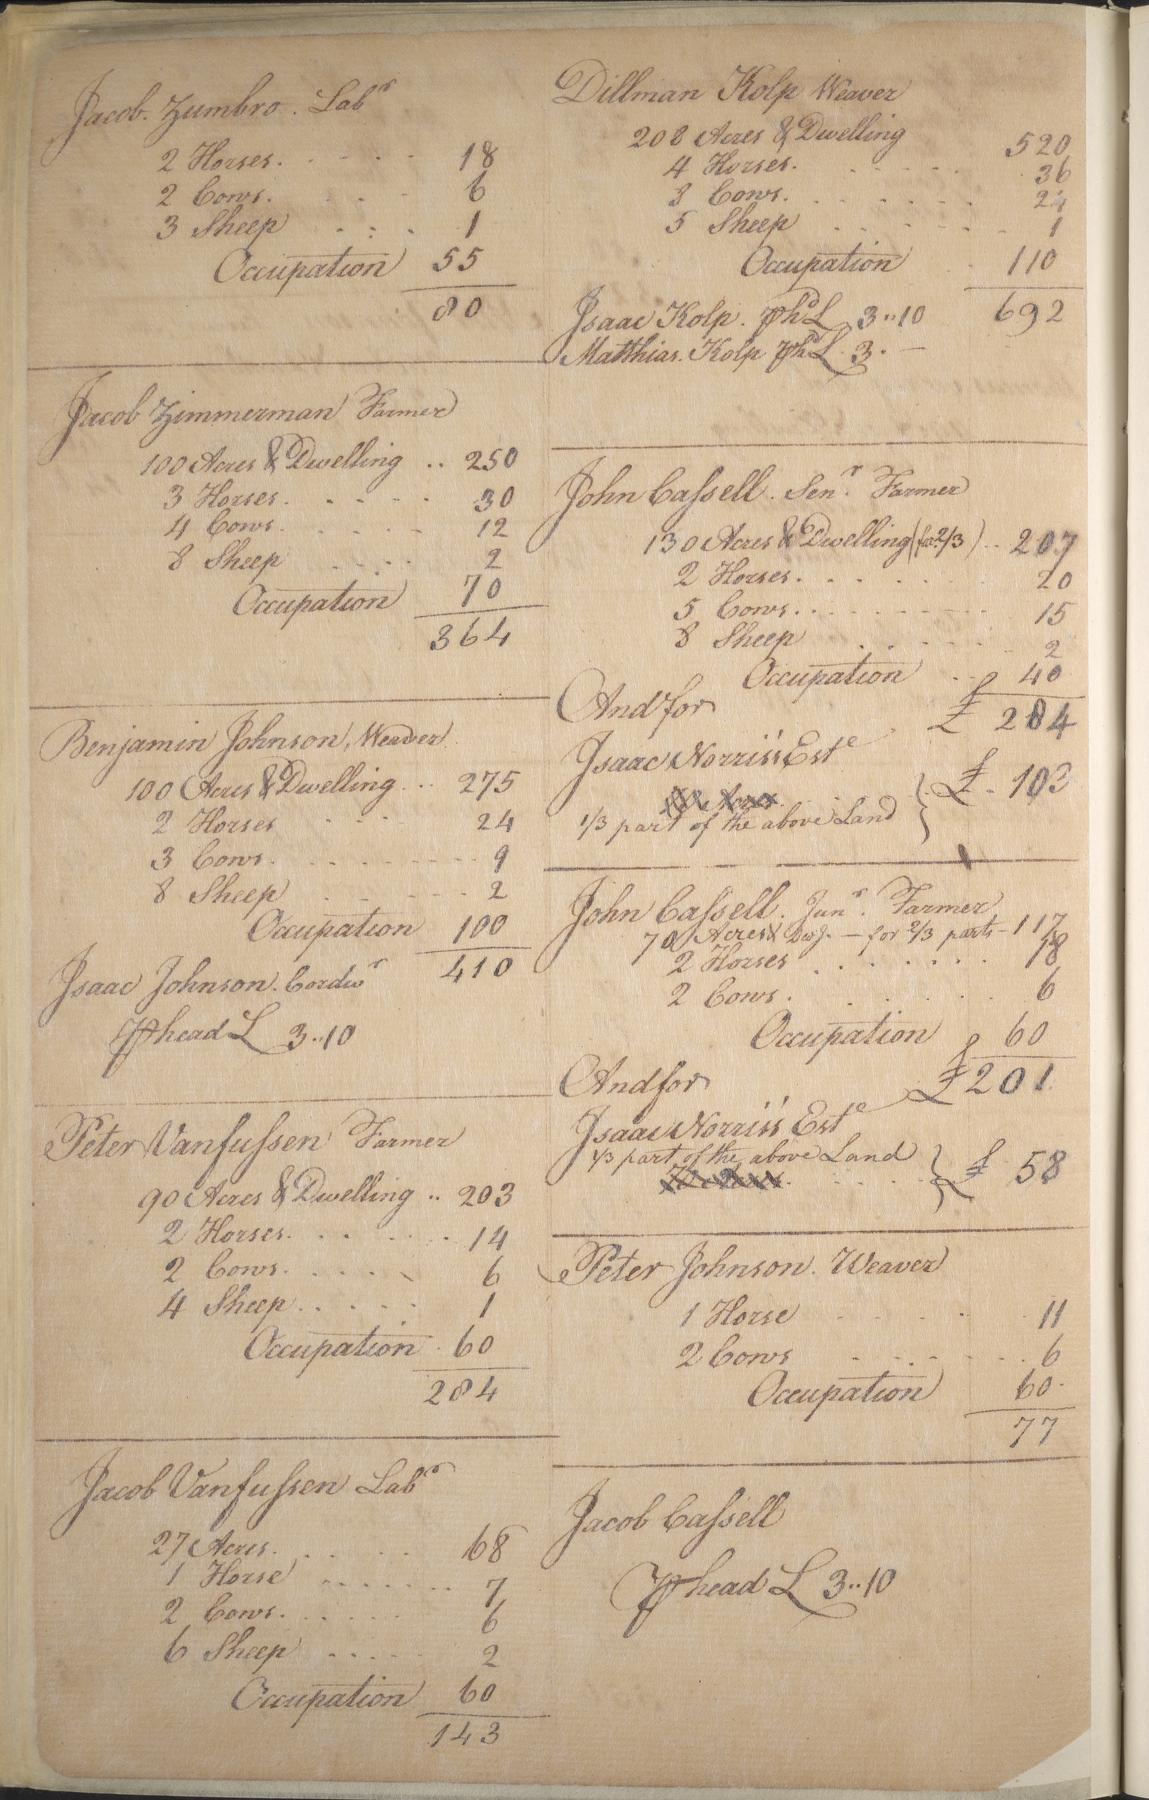 Jacob Zumbro. Labr
2 Horses. 18
2 Cows. 6
3 Sheep 1
Occupation 55
80
Jacob Zimmerman Farmer
100 Acres & Dwelling .. 250
3 Horses. 30
4 Cows. 12
8 Sheep 2
Occupation 70
364
Benjamin Johnson, Weaver
100 Acres & Dwelling .. 275
2 Horses 24
3 Cows. 9
8 Sheep 2
Occupation 100
410
Isaac Johnson. Cordwr
⅌ head L 3..10
Peter Vanfussen Farmer
90 Acres & Dwelling .. 203
2 Horses. 14
2 Cows. 6
4 Sheep 1
Occupation 60
284
Jacob Vanfussen Labr
27 Acres. 68
1 Horse 7
2 Cows. 6
6 Sheep 2
Occupation 60
143
Dillman Kolp Weaver
208 Acres & Dwelling 520
4 Horses. 36
8 Cows. 24
5 Sheep 1
Occupation 110
692
Isaac Kolp. ⅌ hd L 3..10
Matthias. Kolp ⅌ hd L 3. —
John Cassell. Senr. Farmer
130 Acres & Dwelling (for 2/3) .. 207
2 Horses. 20
5 Cows. 15
8 Sheep 2
Occupation 40
£ 284
And for
Isaac Norris's Este
1/3 part of the above Land } £. 103
John Cassell. Junr. Farmer
70 Acres & Dwg. — for 2/3 parts - 117
2 Horses 18
2 Cows. 6
Occupation 60
£ 201
And for
Isaac Norris's Este
1/3 part of the above Land } £ 58
Peter Johnson. Weaver
1 Horse 11
2 Cows 6
Occupation 60
77
Jacob Cassell
⅌ head L 3..10